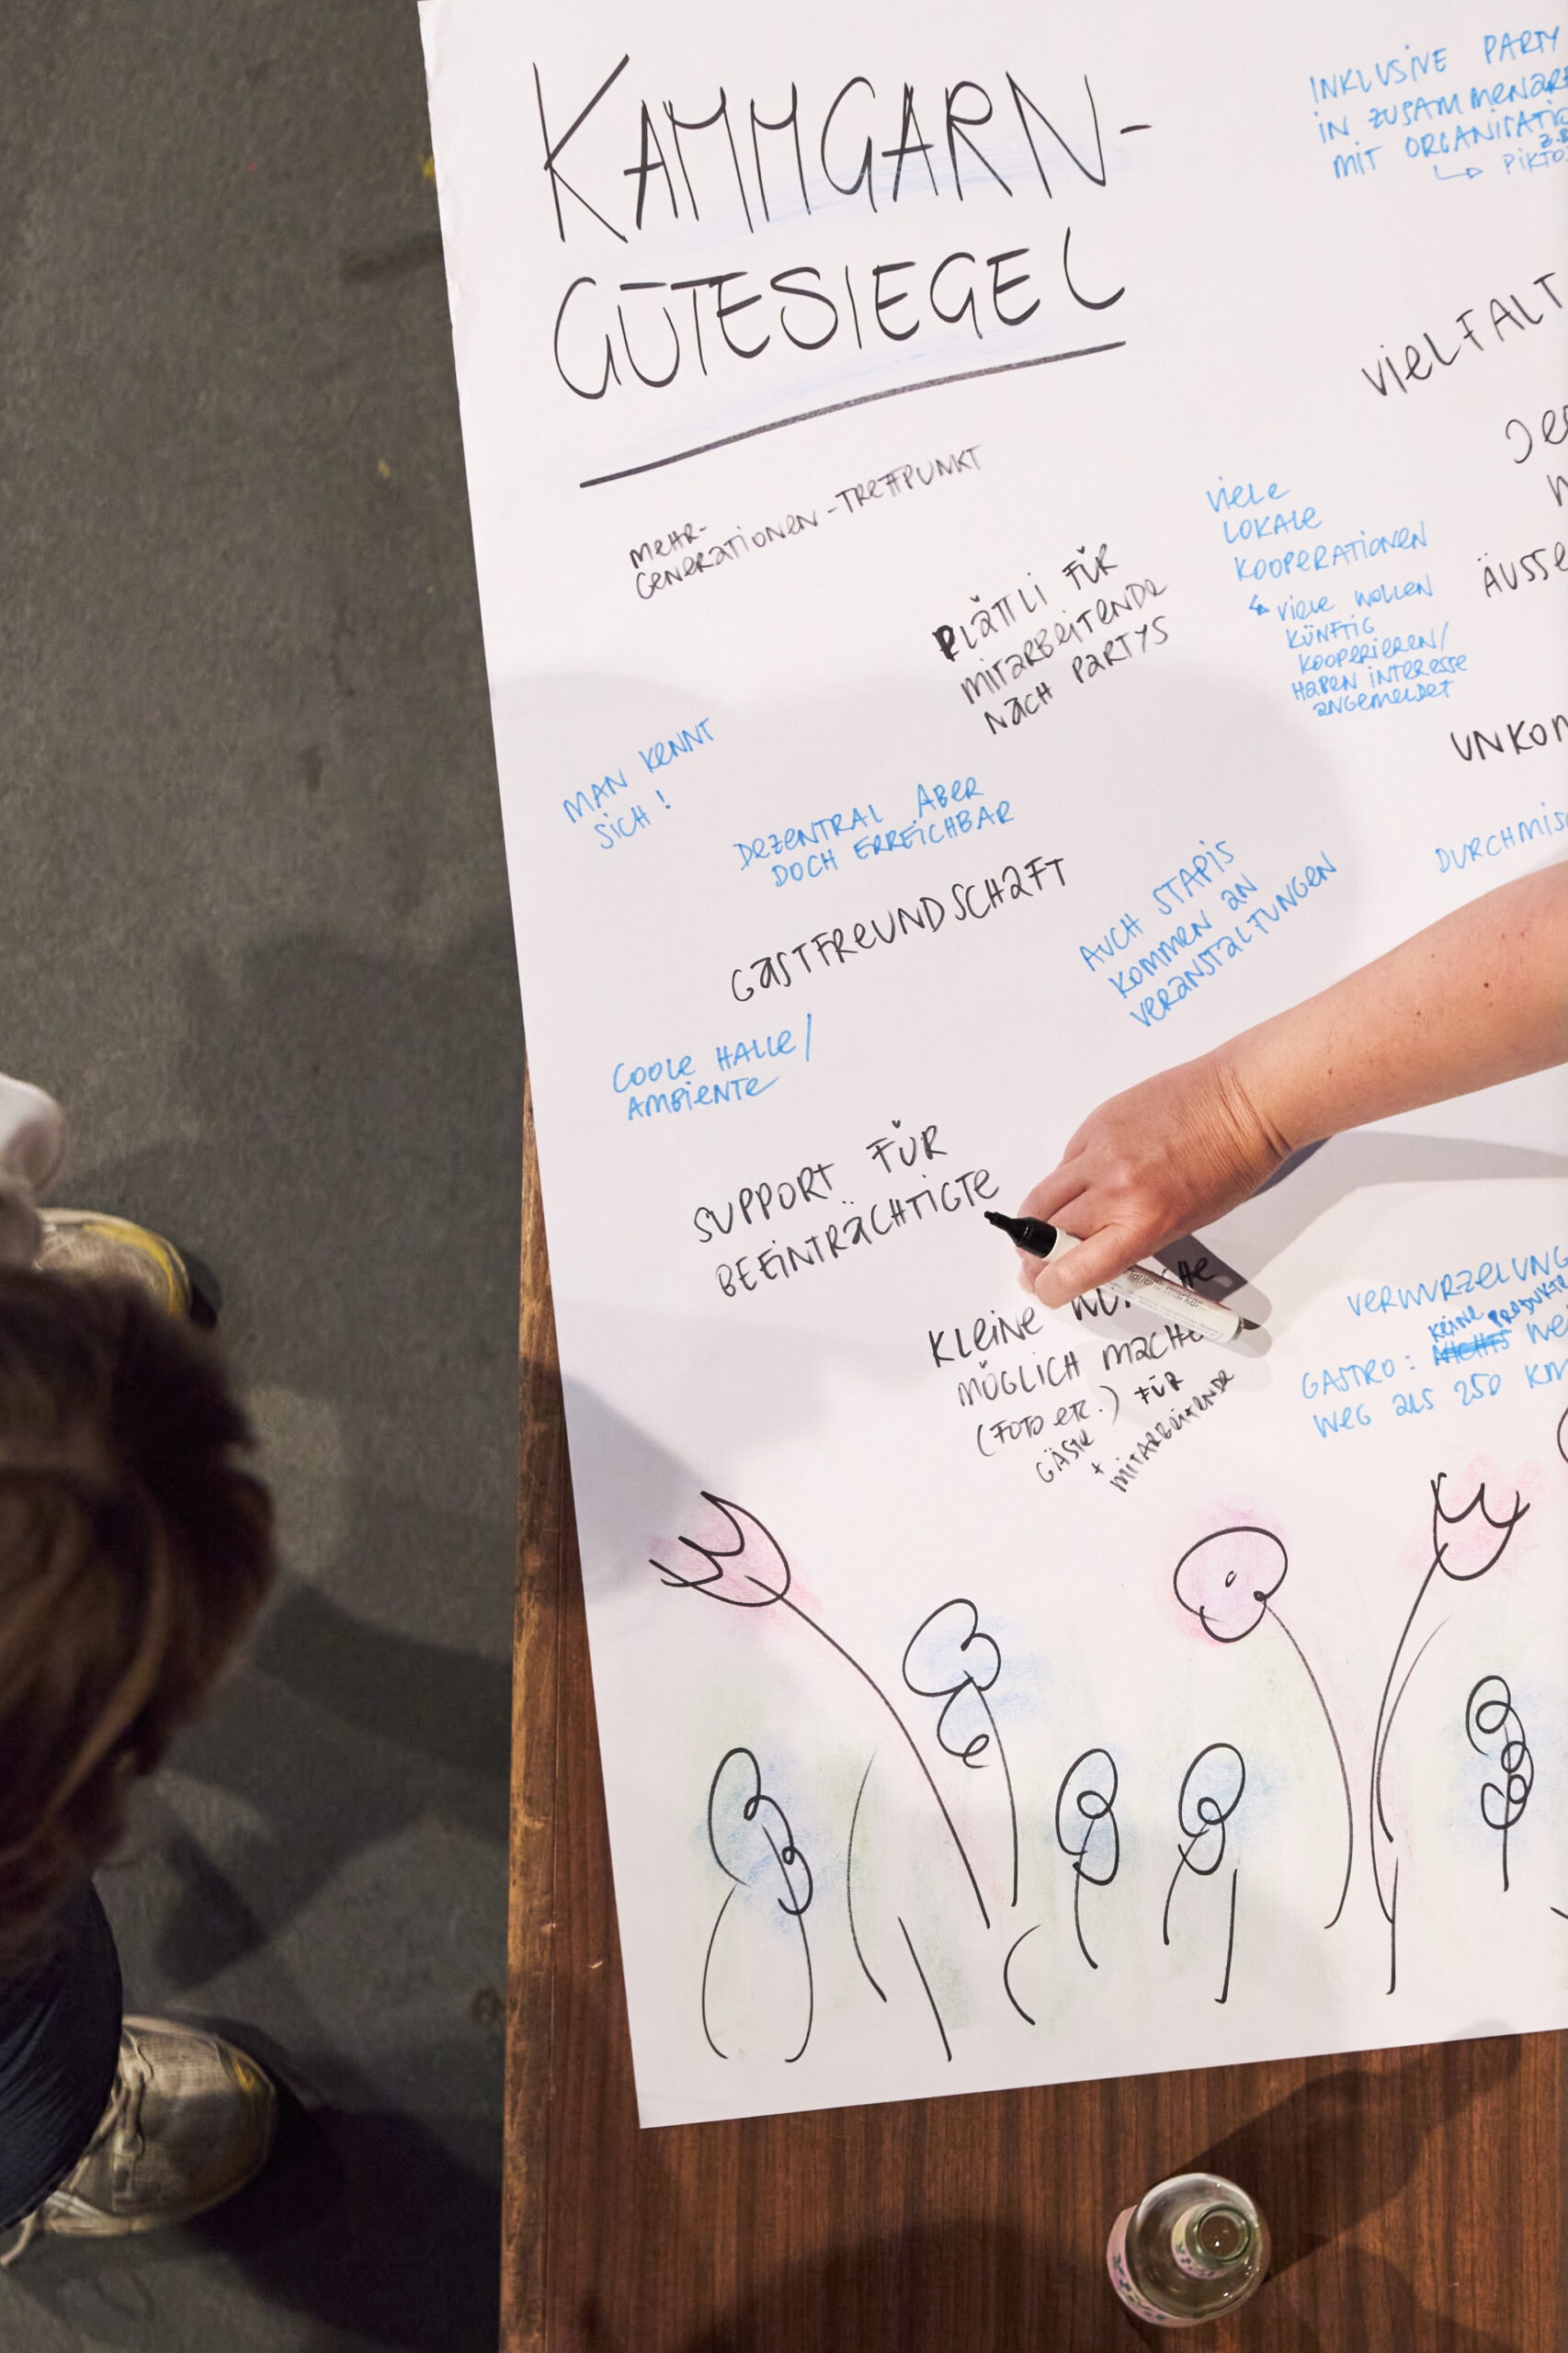 KAMMGARN-
GÜTESIEGEL
INKLUSIVE PARTY
IN ZUSAMMENAR
MIT ORGANISATIO
z.B
↳ PIKTO
VIELFALT
MEHR-
GENERATIONEN-TREFFPUNKT
PLÄTTLI FÜR
MITARBEITENDE
NACH PARTYS
VIELE
LOKALE
KOOPERATIONEN
↳ VIELE WOLLEN
KÜNFTIG
KOOPERIEREN/
HABEN INTERESSE
ANGEMELDET
JE
ÄUSSE
UNKON
MAN KENNT
SICH!
DEZENTRAL ABER
DOCH ERREICHBAR
DURCHMIS
GASTFREUNDSCHAFT
AUCH STAPIS
KOMMEN AN
VERANSTALTUNGEN
COOLE HALLE/
AMBIENTE
SUPPORT FÜR
BEEINTRÄCHTIGTE
KLEINE
MÖGLICH MACHE
(FOTO ETC.) FÜR
GÄSTE
+ MITARBEITENDE
VERWURZELUNG
KEINE PRODUKTE
GASTRO: NICHTS WE
WEG ALS 250 KM